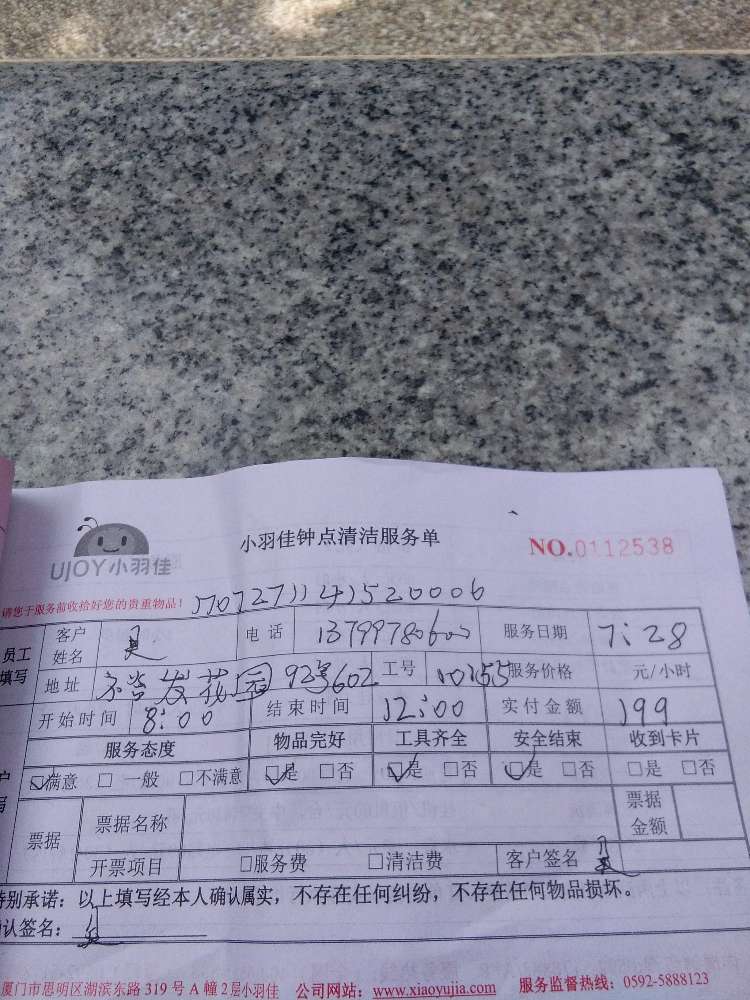 UJOY小羽佳
小羽佳钟点清洁服务单
NO.0112538
请您于服务前收拾好您的贵重物品!
员工
填写
客户
姓名
电话
服务日期 7:28
地址 发花园92号602 工号 10155 服务价格 元/小时
开始时间 8:00 结束时间 12:00 实付金额 199
服务态度 物品完好 工具齐全 安全结束 收到卡片
☑满意 □一般 □不满意 ☑是 □否 ☑是 □否 ☑是 □否 □是 □否
票据 票据名称 票据
金额
开票项目 □服务费 □清洁费 客户签名
特别承诺：以上填写经本人确认属实，不存在任何纠纷，不存在任何物品损坏。
认签名：
厦门市思明区湖滨东路 319 号 A 幢 2层小羽佳 公司网站：www.xiaoyujia.com 服务监督热线：0592-5888123